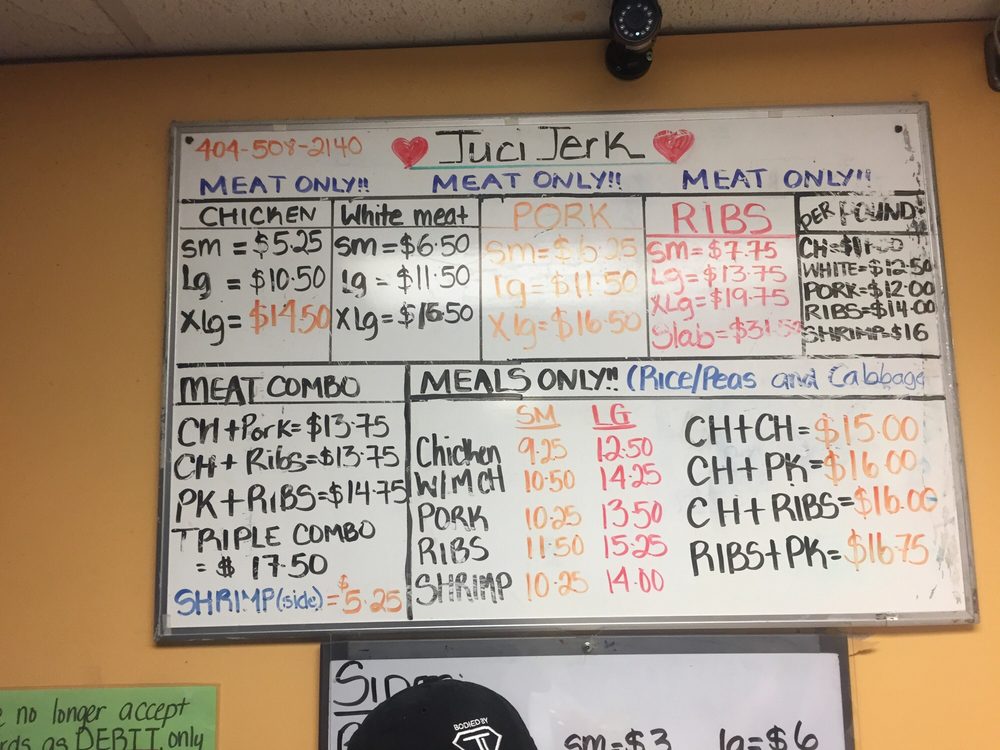 404-508-2140 Juci Jerk
MEAT ONLY!! MEAT ONLY!! MEAT ONLY!!
CHICKEN
sm = $5.25
Lg = $10.50
XLg = $14.50
White meat
sm = $6.50
Lg = $11.50
XLg = $16.50
PORK
Sm = $6.25
lg = $11.50
Xlg = $16.50
RIBS
Sm = $7.75
Lg = $13.75
XLg = $19.75
Slab = $31.50
PER POUND
CH = 
WHITE = $12.50
PORK = $12.00
RIBS = $14.00
SHRIMP = $16
MEAT COMBO
CH + Pork = $13.75
CH + Ribs = $13.75
PK + RIBS = $14.75
TRIPLE COMBO
= $ 17.50
SHRIMP (side) = $5.25
MEALS ONLY!! (Rice/Peas and Cabbage
SM LG
Chicken 9.25 12.50
W/M CH 10.50 14.25
PORK 10.25 13.50
RIBS 11.50 15.25
SHRIMP 10.25 14.00
CH+CH = $15.00
CH + PK = $16.00
CH + RIBS = $16.00
RIBS + PK = $16.75
sm = $3 lg = $6
BODIED BY
no longer accept
as DEBIT only